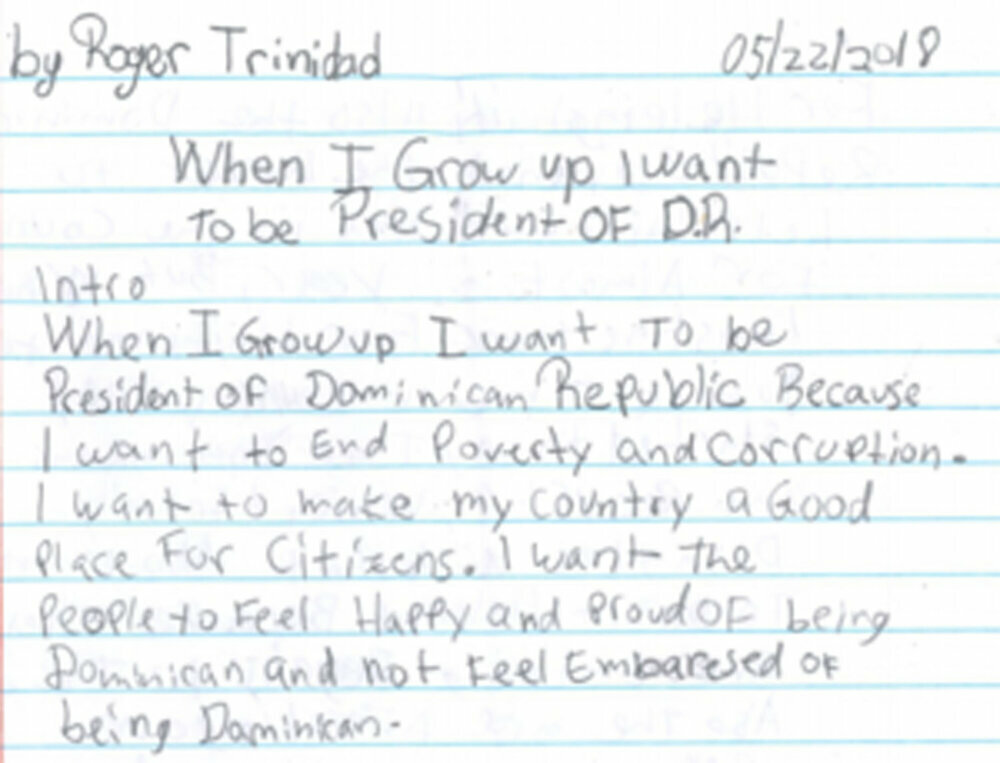 by Roger Trinidad 05/22/2018
When I Grow up I want
To be President OF D.R.
Intro
When I Grow up I want To be
President of Dominican Republic Because
I want to End Poverty and Corruption.
I want to make my country a Good
Place For Citizens. I want the
People to Feel Happy and Proud OF being
Dominican and not Feel Embaresed OF
being Dominican.